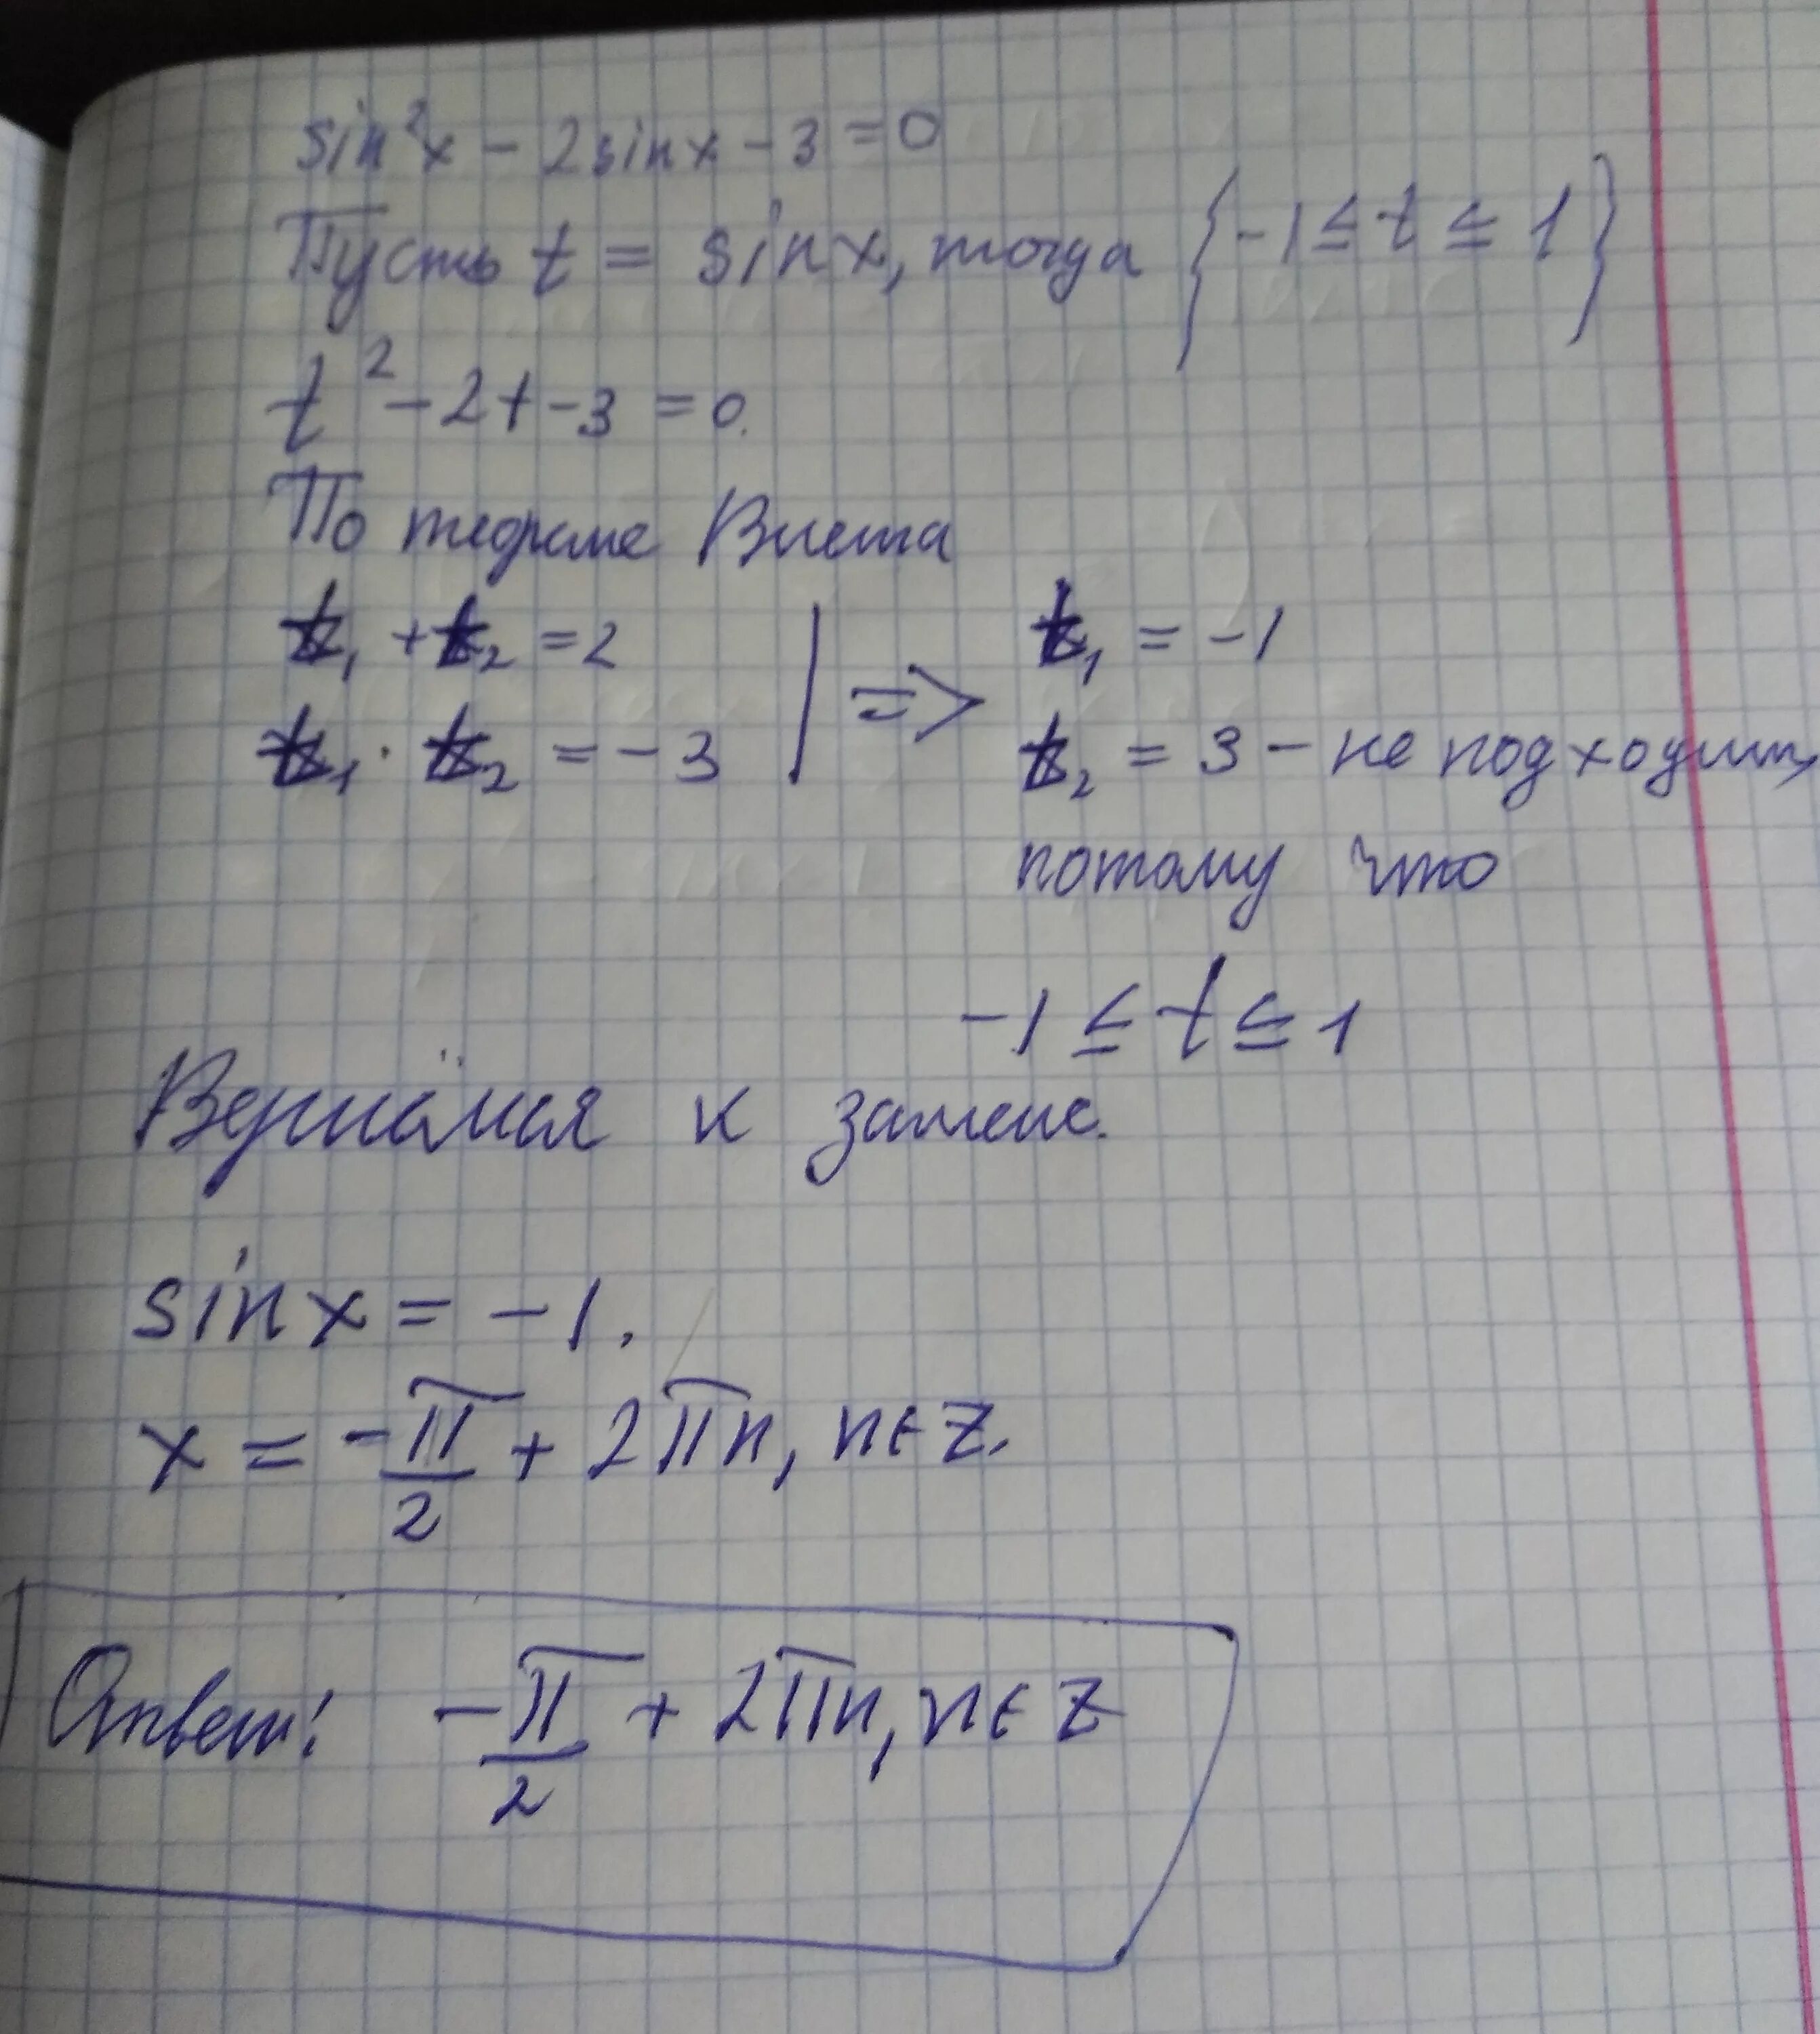 sin²x - 2sinx - 3 = 0
Пусть t = sinx, тогда {-1 ≤ t ≤ 1}
t² - 2t - 3 = 0.
По теореме Виета
t₁ + t₂ = 2
t₁ · t₂ = -3
=>
t₁ = -1
t₂ = 3 - не подходит,
потому что
-1 ≤ t ≤ 1
Вернёмся к замене.
sinx = -1.
x = -π/2 + 2πn, n∈Z.
Ответ: -π/2 + 2πn, n∈Z